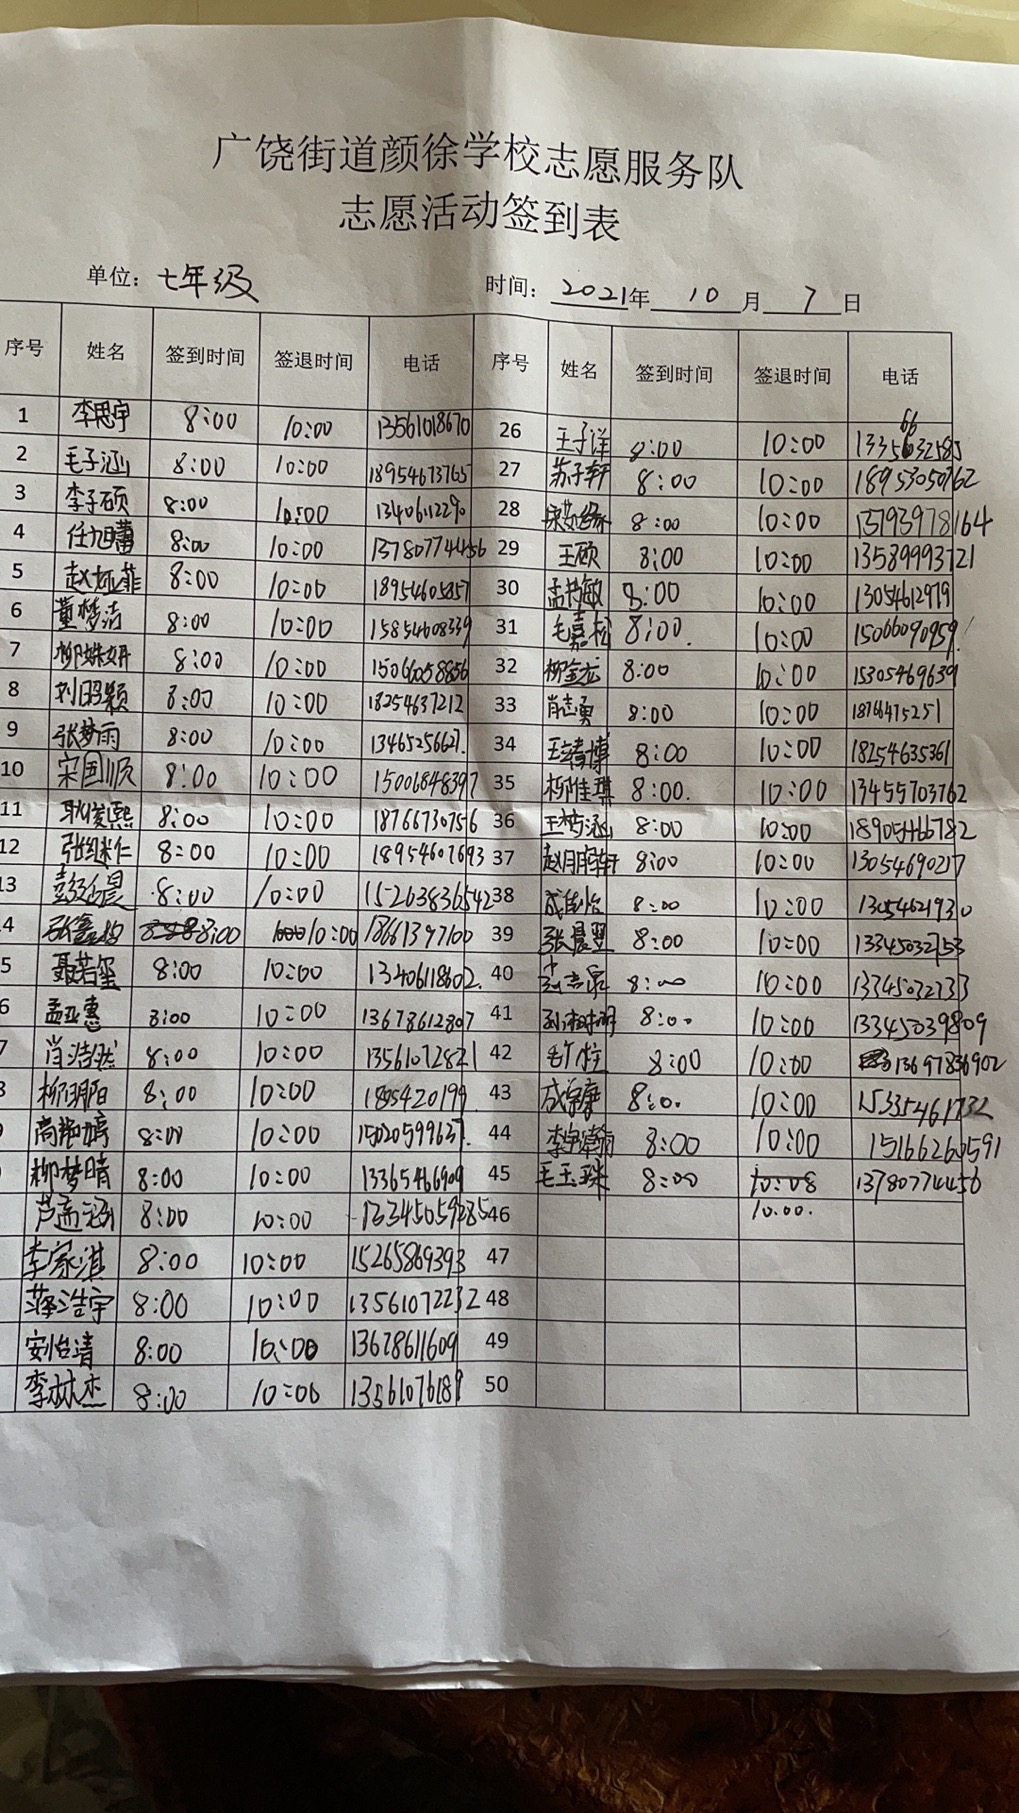 广饶街道颜徐学校志愿服务队
志愿活动签到表
单位：七年级 时间：2021年 10 月 7 日
序号 姓名 签到时间 签退时间 电话 序号 姓名 签到时间 签退时间 电话
1 李思宇 8:00 10:00 13561018670 26 王子洋 8:00 10:00
2 毛子涵 8:00 10:00 18954673765 27 苏子轩 8:00 10:00 18953050762
3 李子硕 8:00 10:00 13406112290 28 8:00 10:00 13793978164
4 任旭蕾 8:00 10:00 13780774456 29 王硕 8:00 10:00 13589993721
5 赵娅菲 8:00 10:00 18954605857 30 孟敏 8:00 10:00 13054612979
6 董梦洁 8:00 10:00 15854608339 31 毛嘉松 8:00 10:00 15066090959
7 柳姝妍 8:00 10:00 15066058856 32 柳金龙 8:00 10:00 15305469639
8 刘昭颖 8:00 10:00 18254637212 33 肖志勇 8:00 10:00 18766475251
9 张梦雨 8:00 10:00 13465256627. 34 王清博 8:00 10:00 18254635361
10 宋国顺 8:00 10:00 15006848397 35 柳佳琪 8:00. 10:00 13455703762
11 耿俊熙 8:00 10:00 18766730756 36 王梦涵 8:00 10:00 18905466782
12 张继仁 8:00 10:00 18954607693 37 赵朋轩 8:00 10:00 13054690217
13 8:00 10:00 15263836542 38 成佳怡 8:00 10:00 13054621930
4 张鑫 8:00 10:00 18661397100 39 张晨翌 8:00 10:00 13345032753
5 聂若玺 8:00 10:00 13406118602. 40 8:00 10:00 13345032733
6 孟亚惠 8:00 10:00 13678612807 41 8:00 10:00 13345039809
7 肖浩然 8:00 10:00 13561072821 42 8:00 10:00 13697836902
8 柳明阳 8:00 10:00 1895420199 43 成宗康 8:00 10:00 15335461732
高艳婷 8:00 10:00 15020599637. 44 李宇瀚 8:00 10:00 15166260591
柳梦晴 8:00 10:00 13365466909 45 毛玉珠 8:00 10:08 13780774456
芦孟涵 8:00 10:00 13345059285 46 10:00.
李家淇 8:00 10:00 15265869393 47
浩宇 8:00 10:00 13561072232 48
安怡清 8:00 10:00 13678611609 49
李林杰 8:00 10:00 13561076189 50